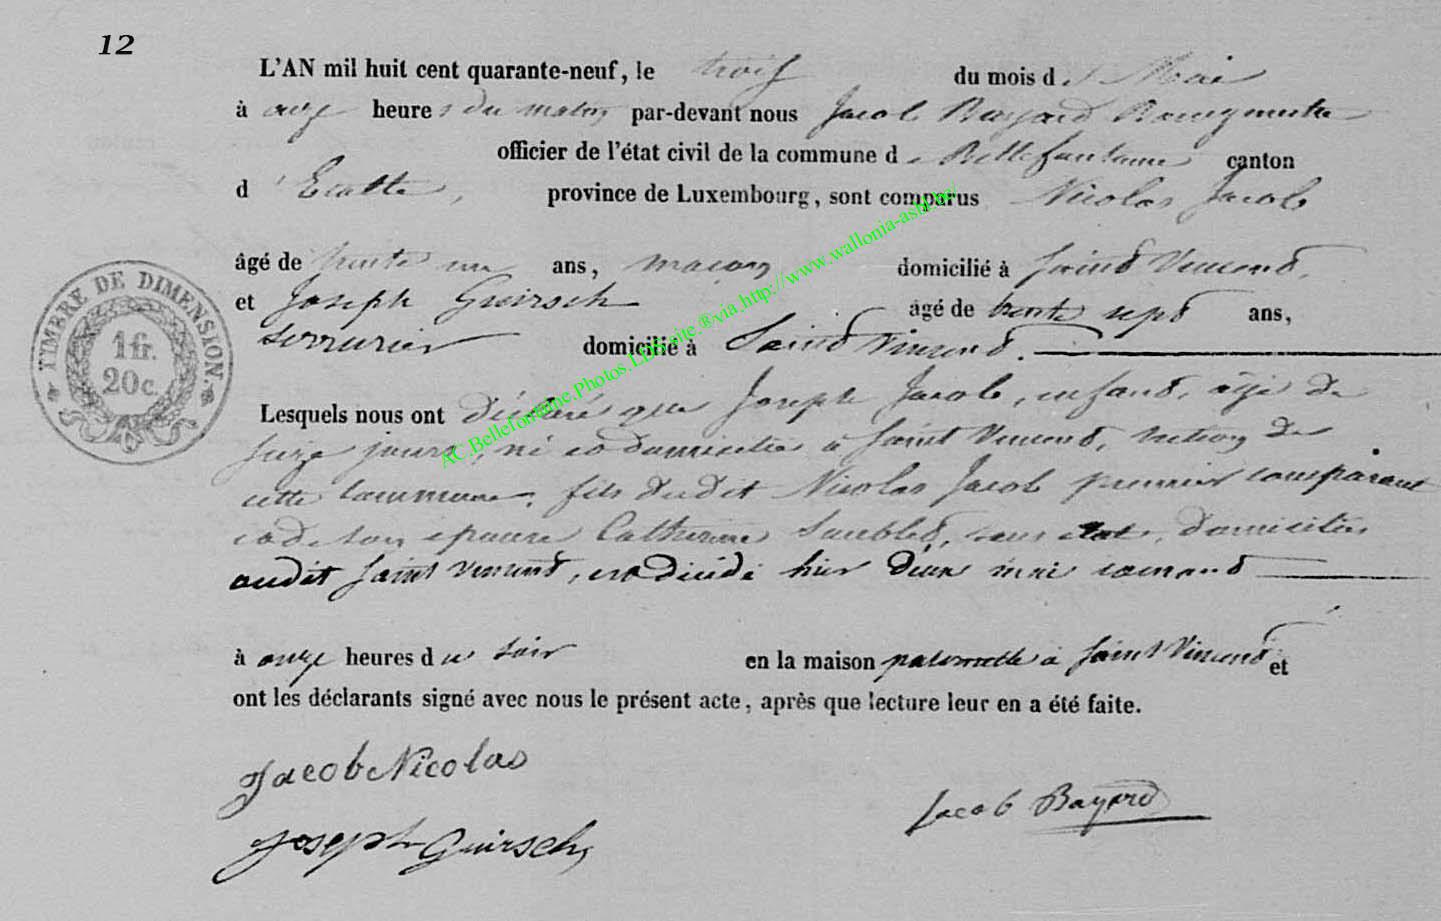 12
L'AN mil huit cent quarante-neuf, le trois du mois de Mai
à onze heures du matin par-devant nous Jacob Bayard Bourgmestre
officier de l'état civil de la commune de Bellefontaine canton
d'Etalle, province de Luxembourg, sont comparus Nicolas Jacob
âgé de trente un ans, maçon domicilié à Saint Vincent,
et Joseph Guirsch âgé de trente sept ans,
serrurier domicilié à Saint Vincent.
TIMBRE DE DIMENSION.
1 fr.
20c.
Lesquels nous ont déclaré que Joseph Jacob, enfant, âgé de
seize jours, né et domicilié à Saint Vincent, section de
cette commune, fils dudit Nicolas Jacob premier comparant
et de son épouse Catherine Saublet, sans état, domiciliés
audit Saint Vincent, est décédé hier deux mai courant
à onze heures du soir en la maison paternelle à Saint Vincent et
ont les déclarants signé avec nous le présent acte, après que lecture leur en a été faite.
Jacob Nicolas
Jacob Bayard
Joseph Guirsch
AC.Bellefontaine.Photos.LDS.site.®via.http://www.wallonia-asbl.be/